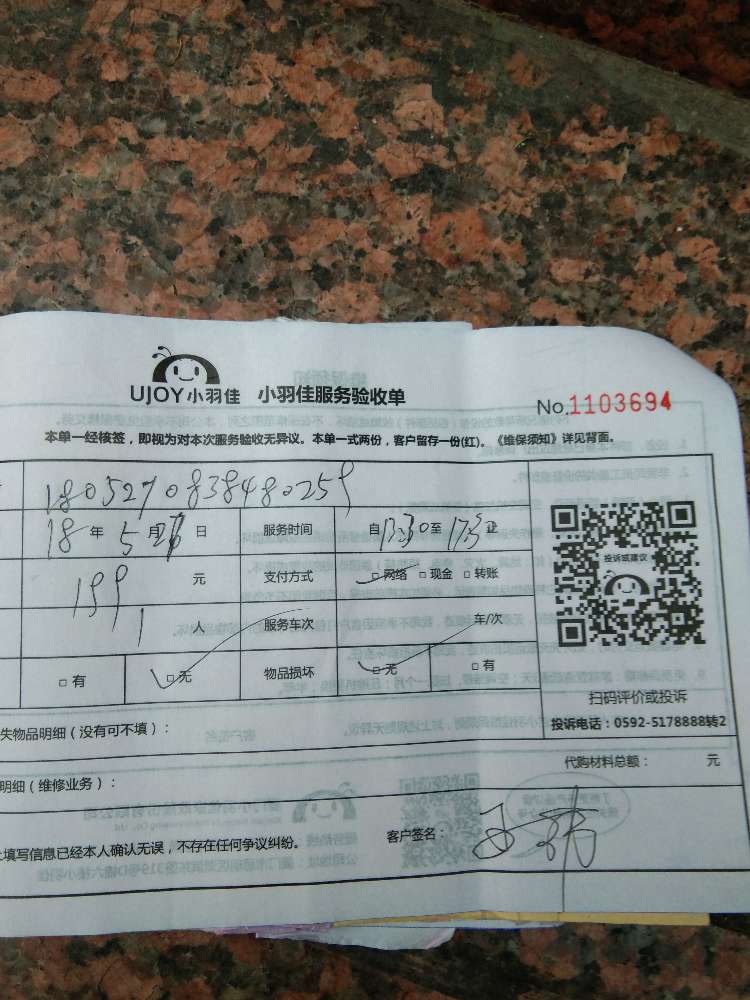 UJOY小羽佳 小羽佳服务验收单
No.1103694
本单一经核签，即视为对本次服务验收无异议。本单一式两份，客户留存一份(红)。《维保须知》详见背面。
1805270838480259
18 年 5 月 日 服务时间 自 13:30 至 17:30
投诉或建议
199 元 支付方式 □网络 □现金 □转账
1 人 服务车次 车/次
□有 □无 物品损坏 □无 □有
扫码评价或投诉
投诉电话：0592-5178888转2
失物品明细（没有可不填）：
代购材料总额： 元
明细（维修业务）：
填写信息已经本人确认无误，不存在任何争议纠纷。
客户签名：